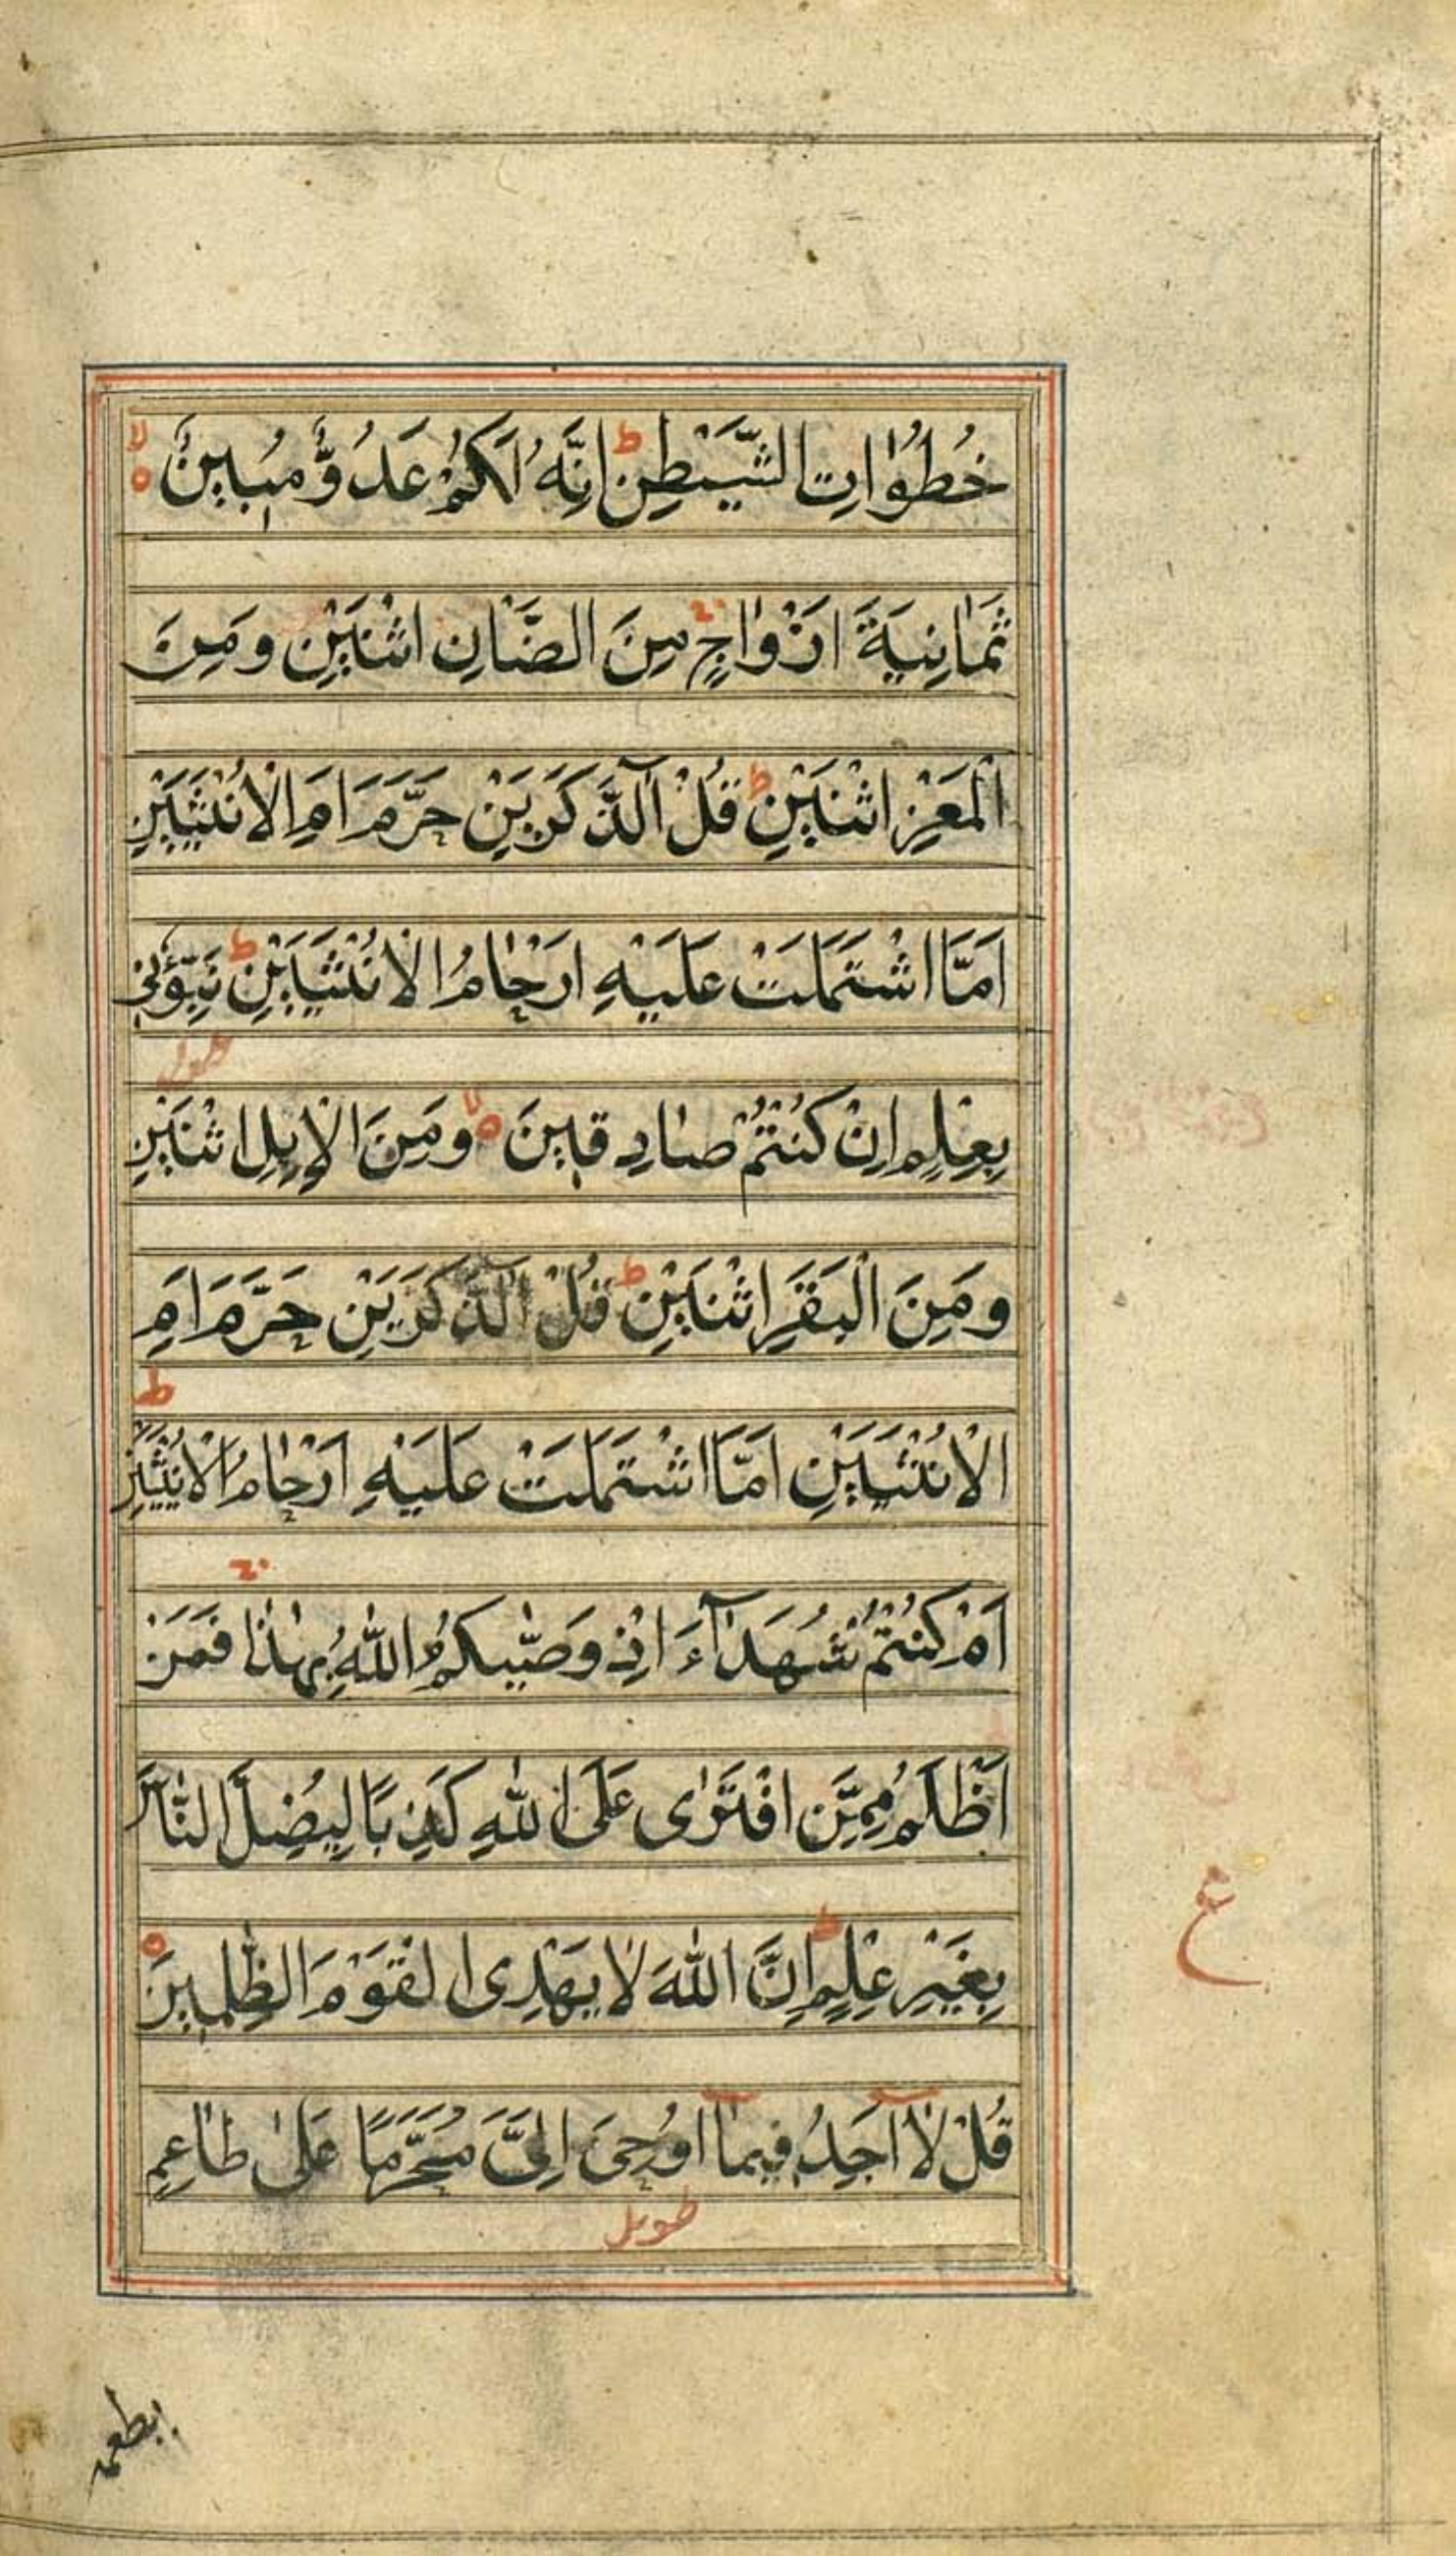 خُطُوٰاتِ الشَّيْطٰنِ ط اِنَّهُ لَكُمْ عَدُوٌّ مُبِينٌ ه لا
ثَمٰانِيَةَ اَزْوٰاجٍ ج مِنَ الضَّاْنِ اثْنَيْنِ وَمِنَ
الْمَعْزِ اثْنَيْنِ ط قُلْ آلذَّكَرَيْنِ حَرَّمَ اَمِ الْاُنْثَيَيْنِ
اَمَّا اشْتَمَلَتْ عَلَيْهِ اَرْحٰامُ الْاُنْثَيَيْنِ ط نَبِّؤُنِي
بِعِلْمٍ اِنْ كُنْتُمْ صٰادِقِينَ ه لا وَمِنَ الْاِبِلِ اثْنَيْنِ
وَمِنَ الْبَقَرِ اثْنَيْنِ ط قُلْ آلذَّكَرَيْنِ حَرَّمَ اَمِ
الْاُنْثَيَيْنِ اَمَّا اشْتَمَلَتْ عَلَيْهِ اَرْحٰامُ الْاُنْثَيَيْنِ ط
اَمْ كُنْتُمْ شُهَدٰآءَ اِذْ وَصّٰيكُمُ اللّٰهُ بِهٰذٰا ج فَمَنْ
اَظْلَمُ مِمَّنِ افْتَرٰى عَلَى اللّٰهِ كَذِبًا لِيُضِلَّ النّٰاسَ
بِغَيْرِ عِلْمٍ ط اِنَّ اللّٰهَ لٰا يَهْدِى الْقَوْمَ الظّٰلِمِينَ ه
ع
قُلْ لٰآ اَجِدُ فِيمٰآ اُوحِىَ اِلَىَّ مُحَرَّمًا عَلىٰ طٰاعِمٍ
طويل
يطعمه